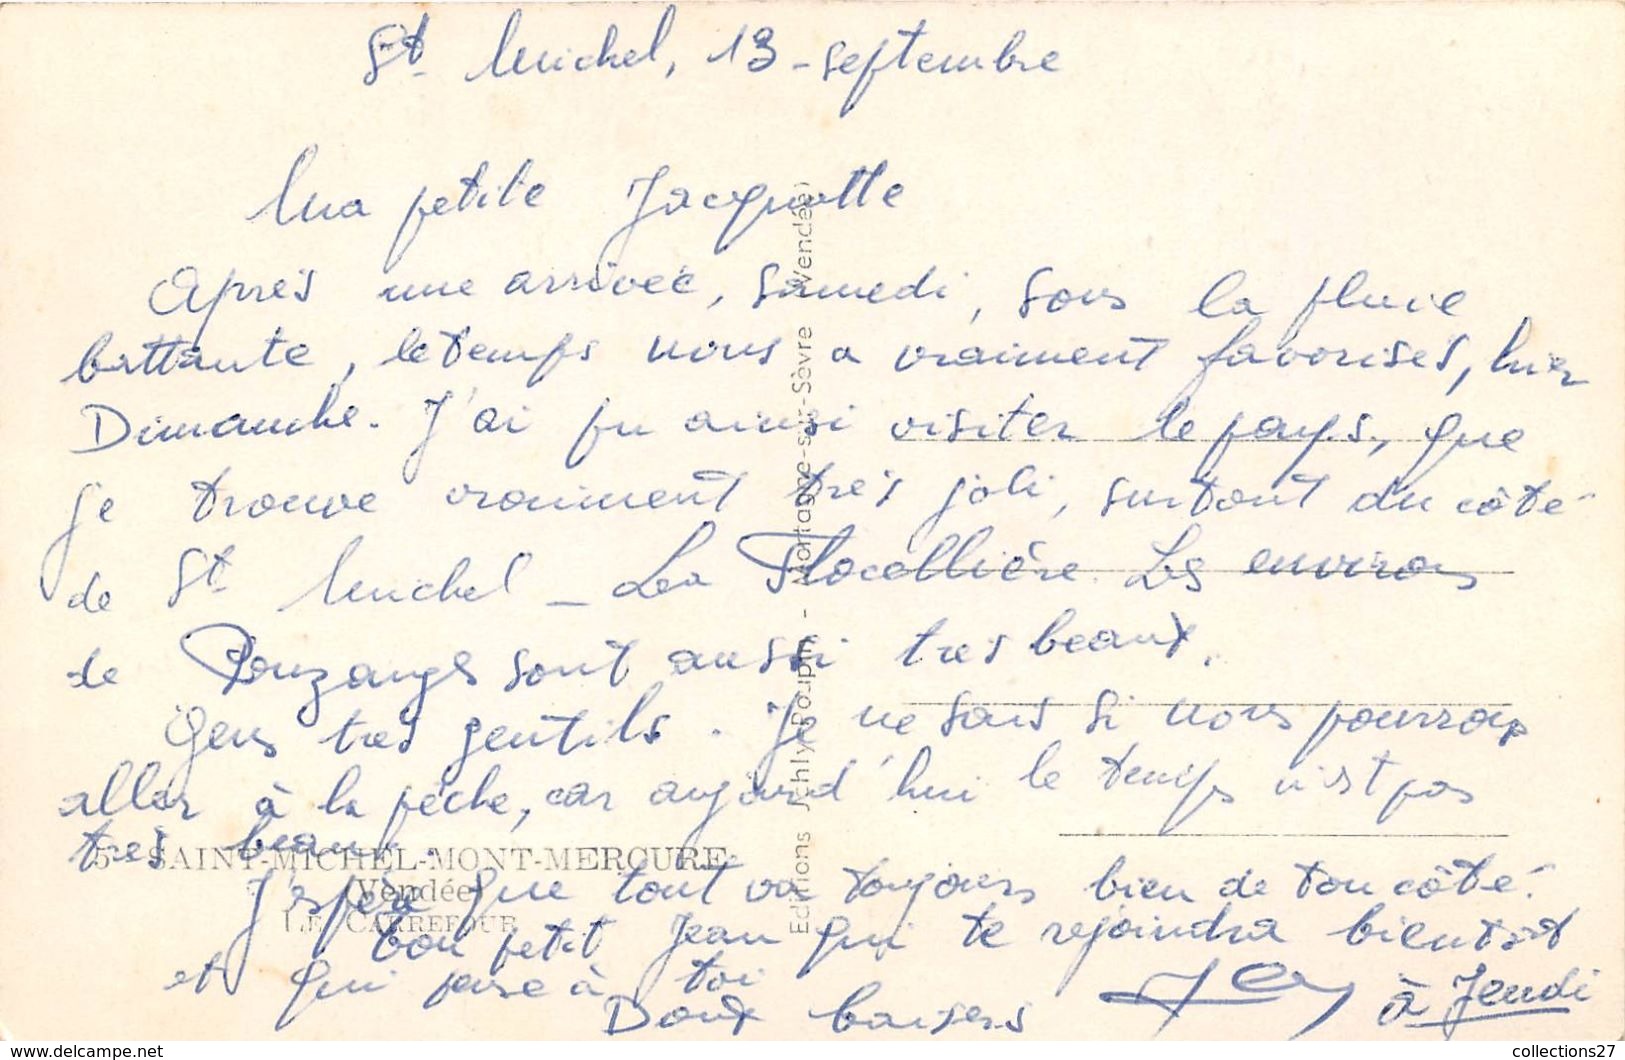 St Michel, 13 - septembre
Ma petite Jacquotte
Après une arrivée, samedi, sous la pluie
battante, le temps nous a vraiment favorisés, hier
Dimanche. J'ai pu ainsi visiter le pays, que
je trouve vraiment très joli, surtout du côté
de St Michel - La Flocellière. Les environs
de Pouzauges sont aussi très beaux.
Gens très gentils. Je ne sais si nous pourrons
aller à la pêche, car aujourd'hui le temps n'est pas
très beau.
J'espère que tout va toujours bien de ton côté.
ton petit Jean qui te rejoindra bientôt
et qui pense à toi
Doux baisers
à Jeudi
5 - SAINT-MICHEL-MONT-MERCURE
(Vendée)
LE CARREFOUR
Editions Jehly-Poupin - Mortagne-sur-Sèvre (Vendée)
collections27